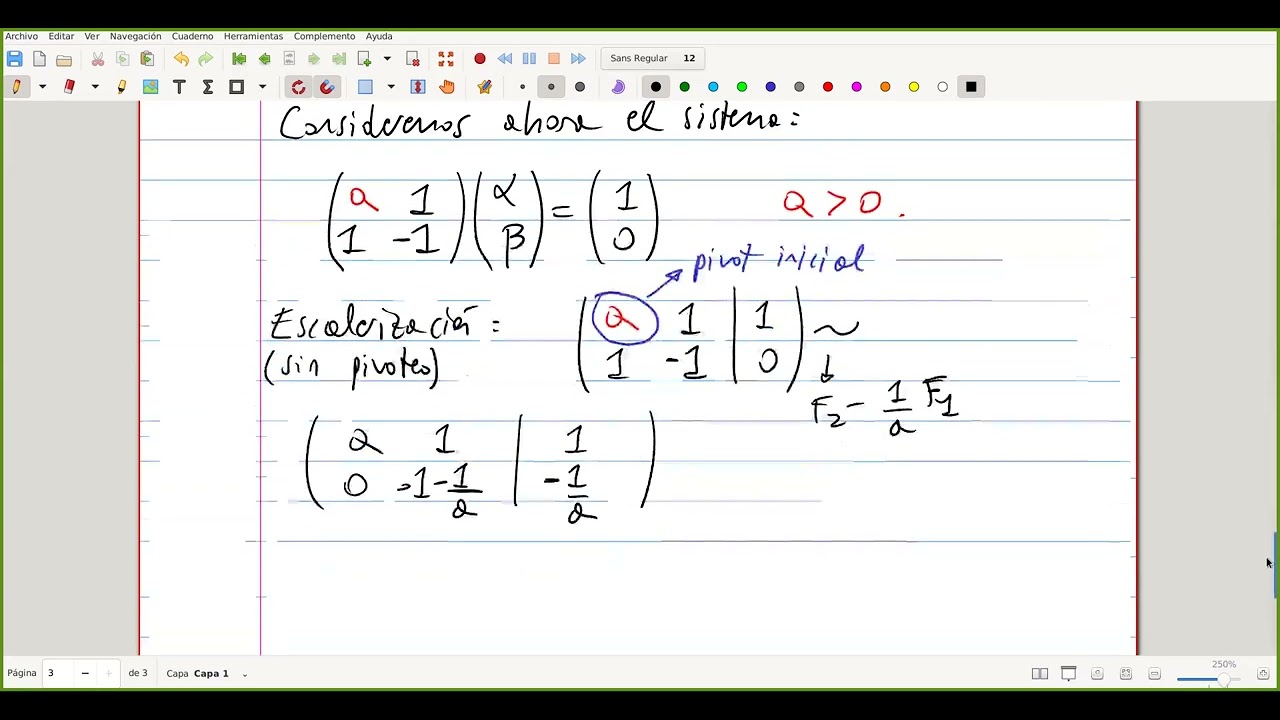 Archivo Editar Ver Navegación Cuaderno Herramientas Complemento Ayuda
Sans Regular 12
Consideremos ahora el sistema:
(a 1; 1 -1) (α; β) = (1; 0) a > 0.
pivot inicial
Escalerización: (a 1 | 1; 1 -1 | 0) ~
(sin pivoteo)
F₂ - 1/a F₁
(a 1 | 1; 0 -1-1/a | -1/a)
Página 3 de 3 Capa Capa 1 250%